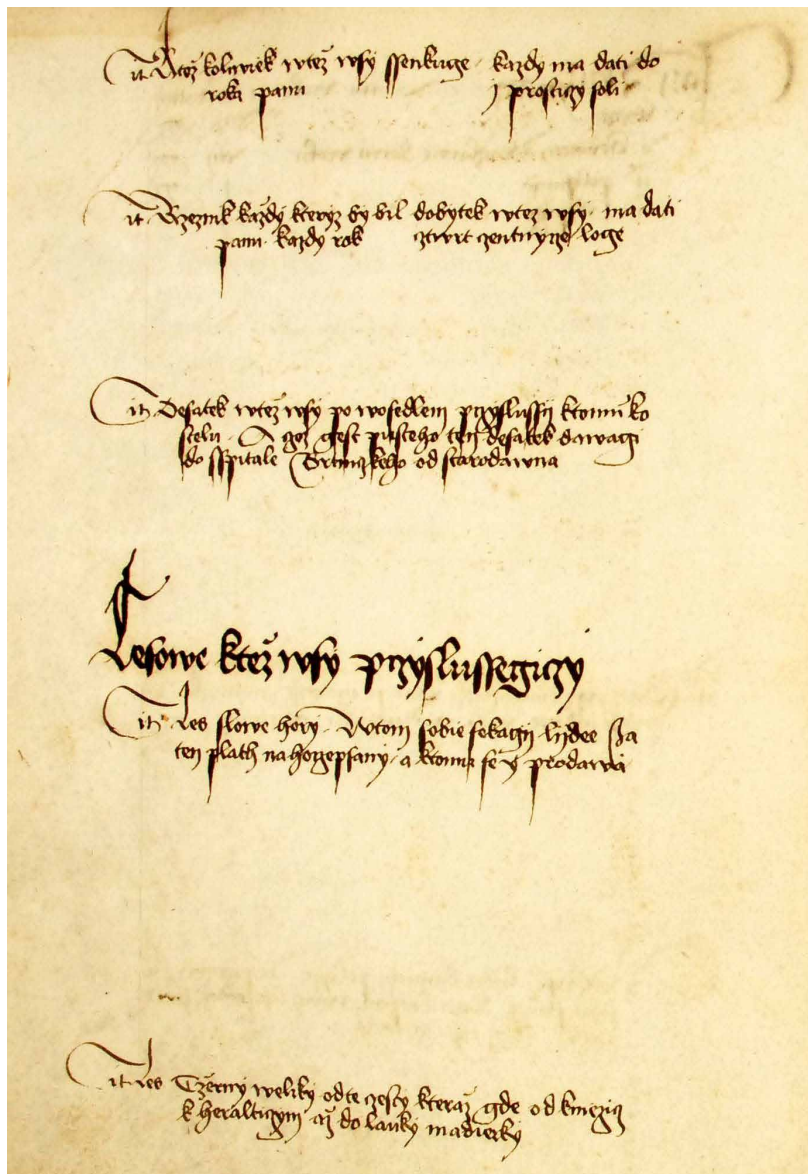 it Ktož kolwiek wtež wsy ssenkuge · każdy ma dati do
roka panu j prosticzy soli ·
it · Rzeznik każdy kteryz by bil dobytek wtez wsy · ma dati
panu · każdy rok cztwrt czentnyrze loge
it Desatek wtež wsy po wosedlem przyslussy ktomu ko
stelu · A goz gest pusteho ten desatek dawagi
do sspitale od starodawna
Lesowe ktež wsy przyslussegiczy
it Les slowe hory · Wtom sobie sekagy lydee Za
ten plath nahorzepsany · a ktomu se y prodawa
it Les Czerny weliky odte czesty kteraz gde od
k heraltczym až do lauky madierky